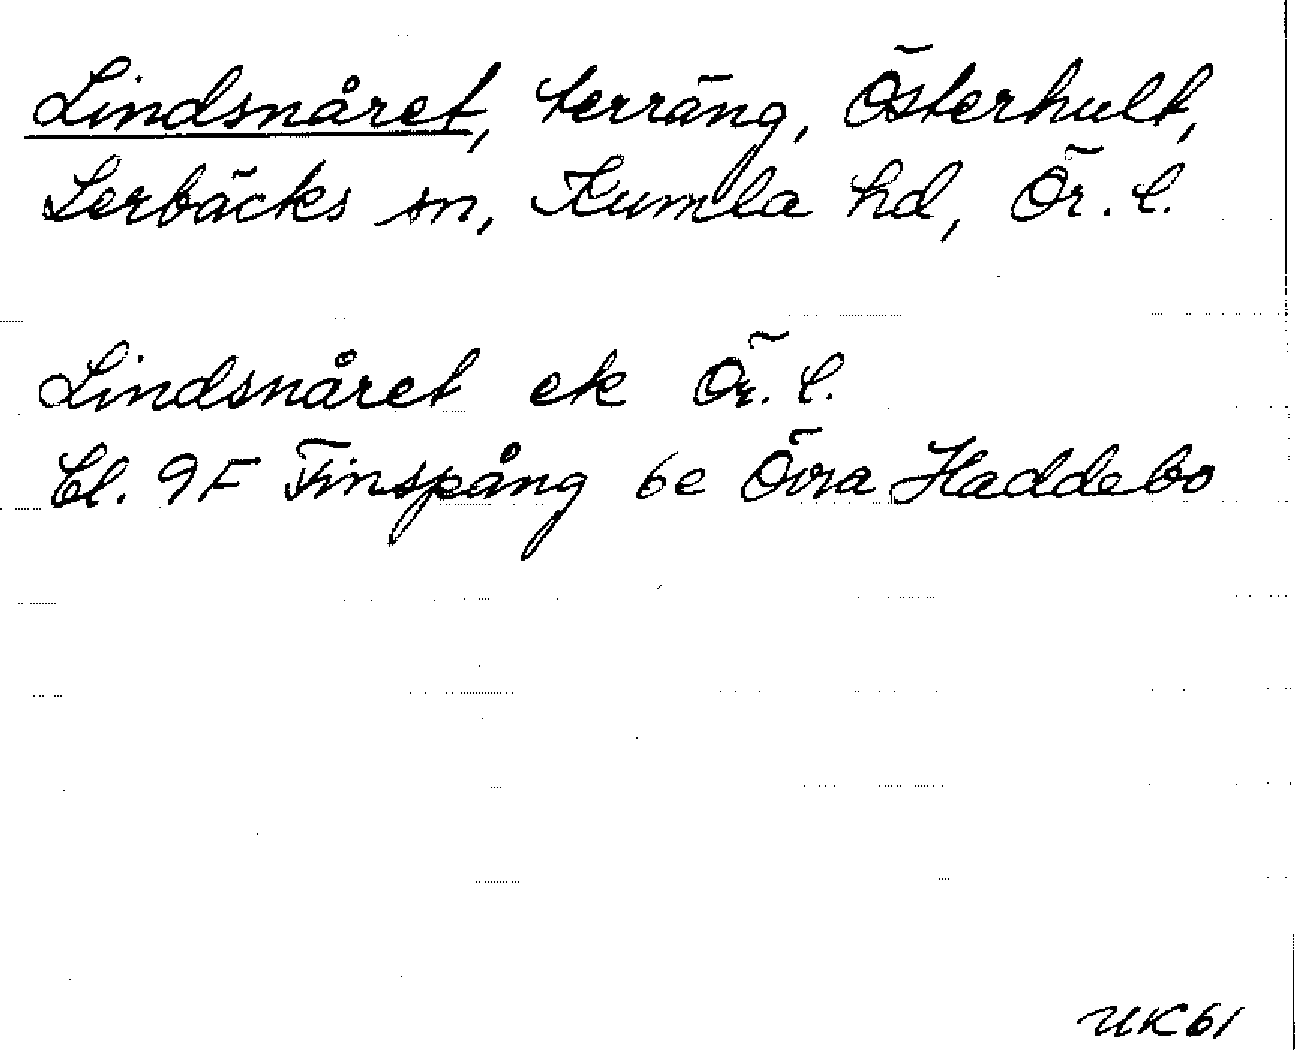 Lindsnåret, terräng, Österhult,
Lerbäcks sn, Kumla hd, Ör. l.
Lindsnåret ek Ör. l.
bl. 9F Finspång 6e Övra Haddebo
UK61